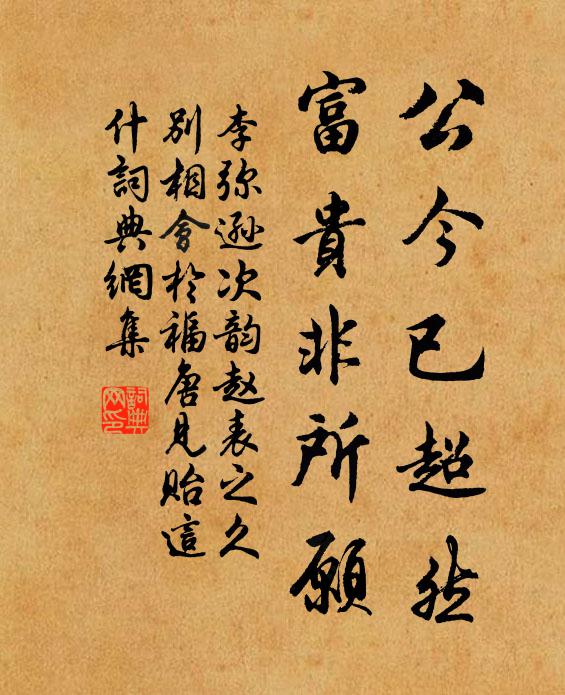 公今已超然
富貴非所願
李弥遜次韵赵表之久
别相會於福唐見貽這
什詞典網集
詞典
网印